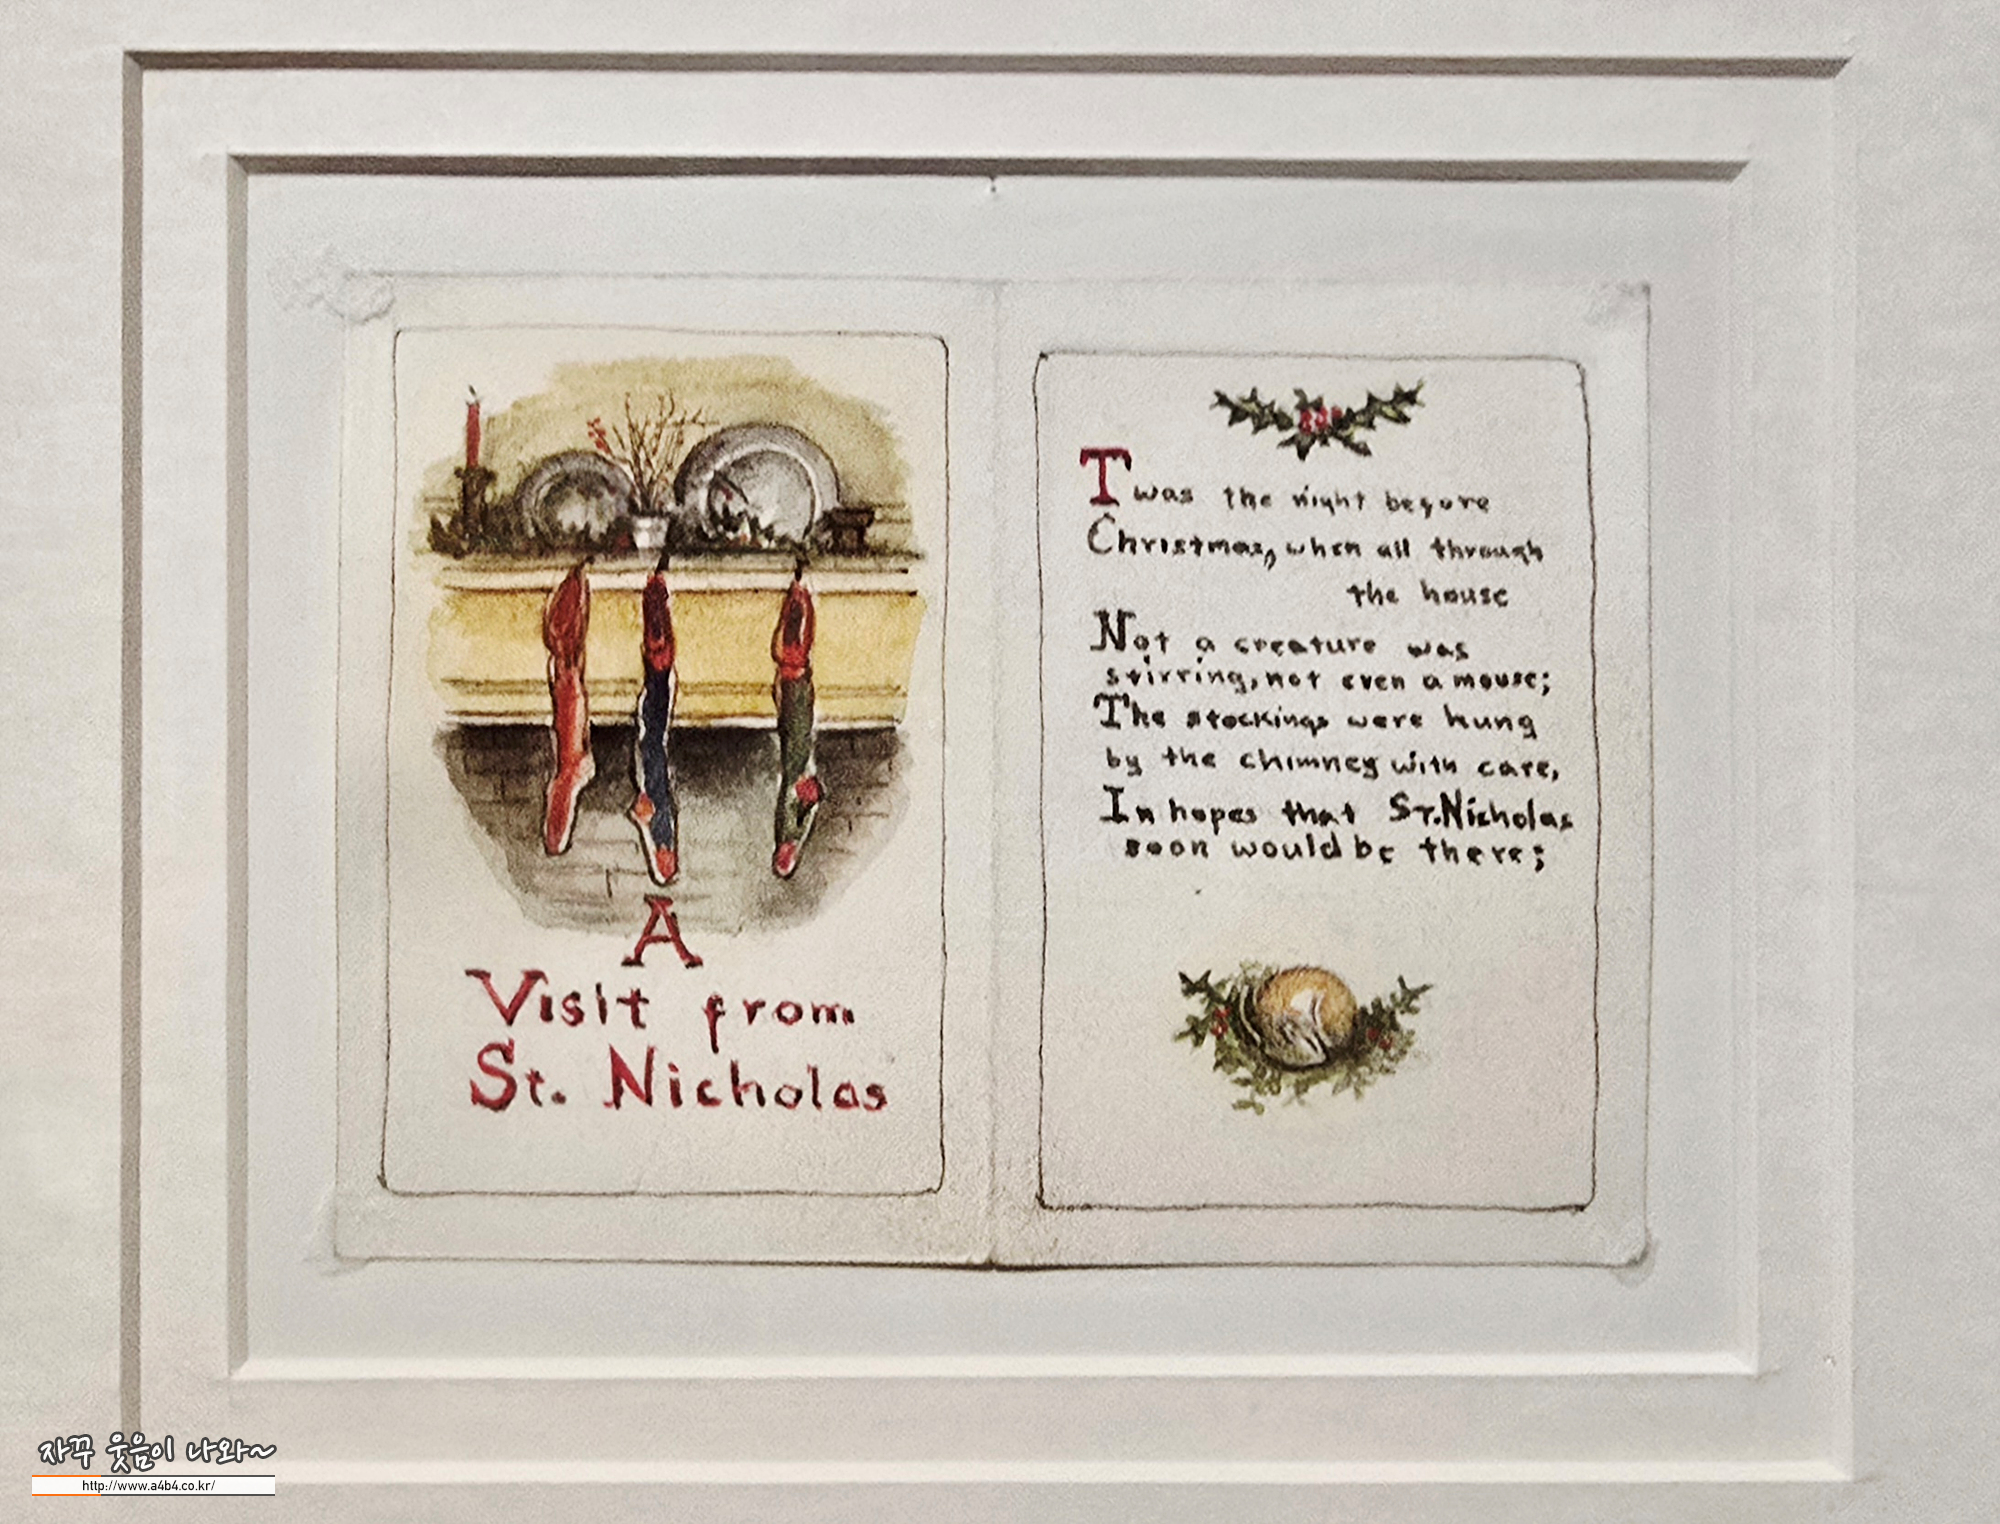 A
Visit from
St. Nicholas
Twas the night before
Christmas, when all through
the house
Not a creature was
stirring, not even a mouse;
The stockings were hung
by the chimney with care,
In hopes that St. Nicholas
soon would be there;
자꾸 웃음이 나와~
http://www.a4b4.co.kr/